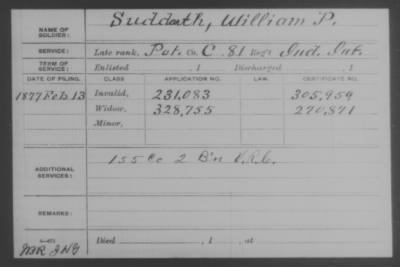 NAME OF SOLDIER: Suddath, William P.
SERVICE: Late rank, Pvt. Co. C, 81 Reg't Ind. Inf.
TERM OF SERVICE: Enlisted , 1 Discharged , 1
DATE OF FILING. CLASS APPLICATION NO. LAW. CERTIFICATE NO.
1877 Feb. 13 Invalid, 231,083 305,959
Widow, 328,755 270,871
Minor,
ADDITIONAL SERVICES: 155 Co 2 B'n V.R.C.
REMARKS:
Died , 1 , at